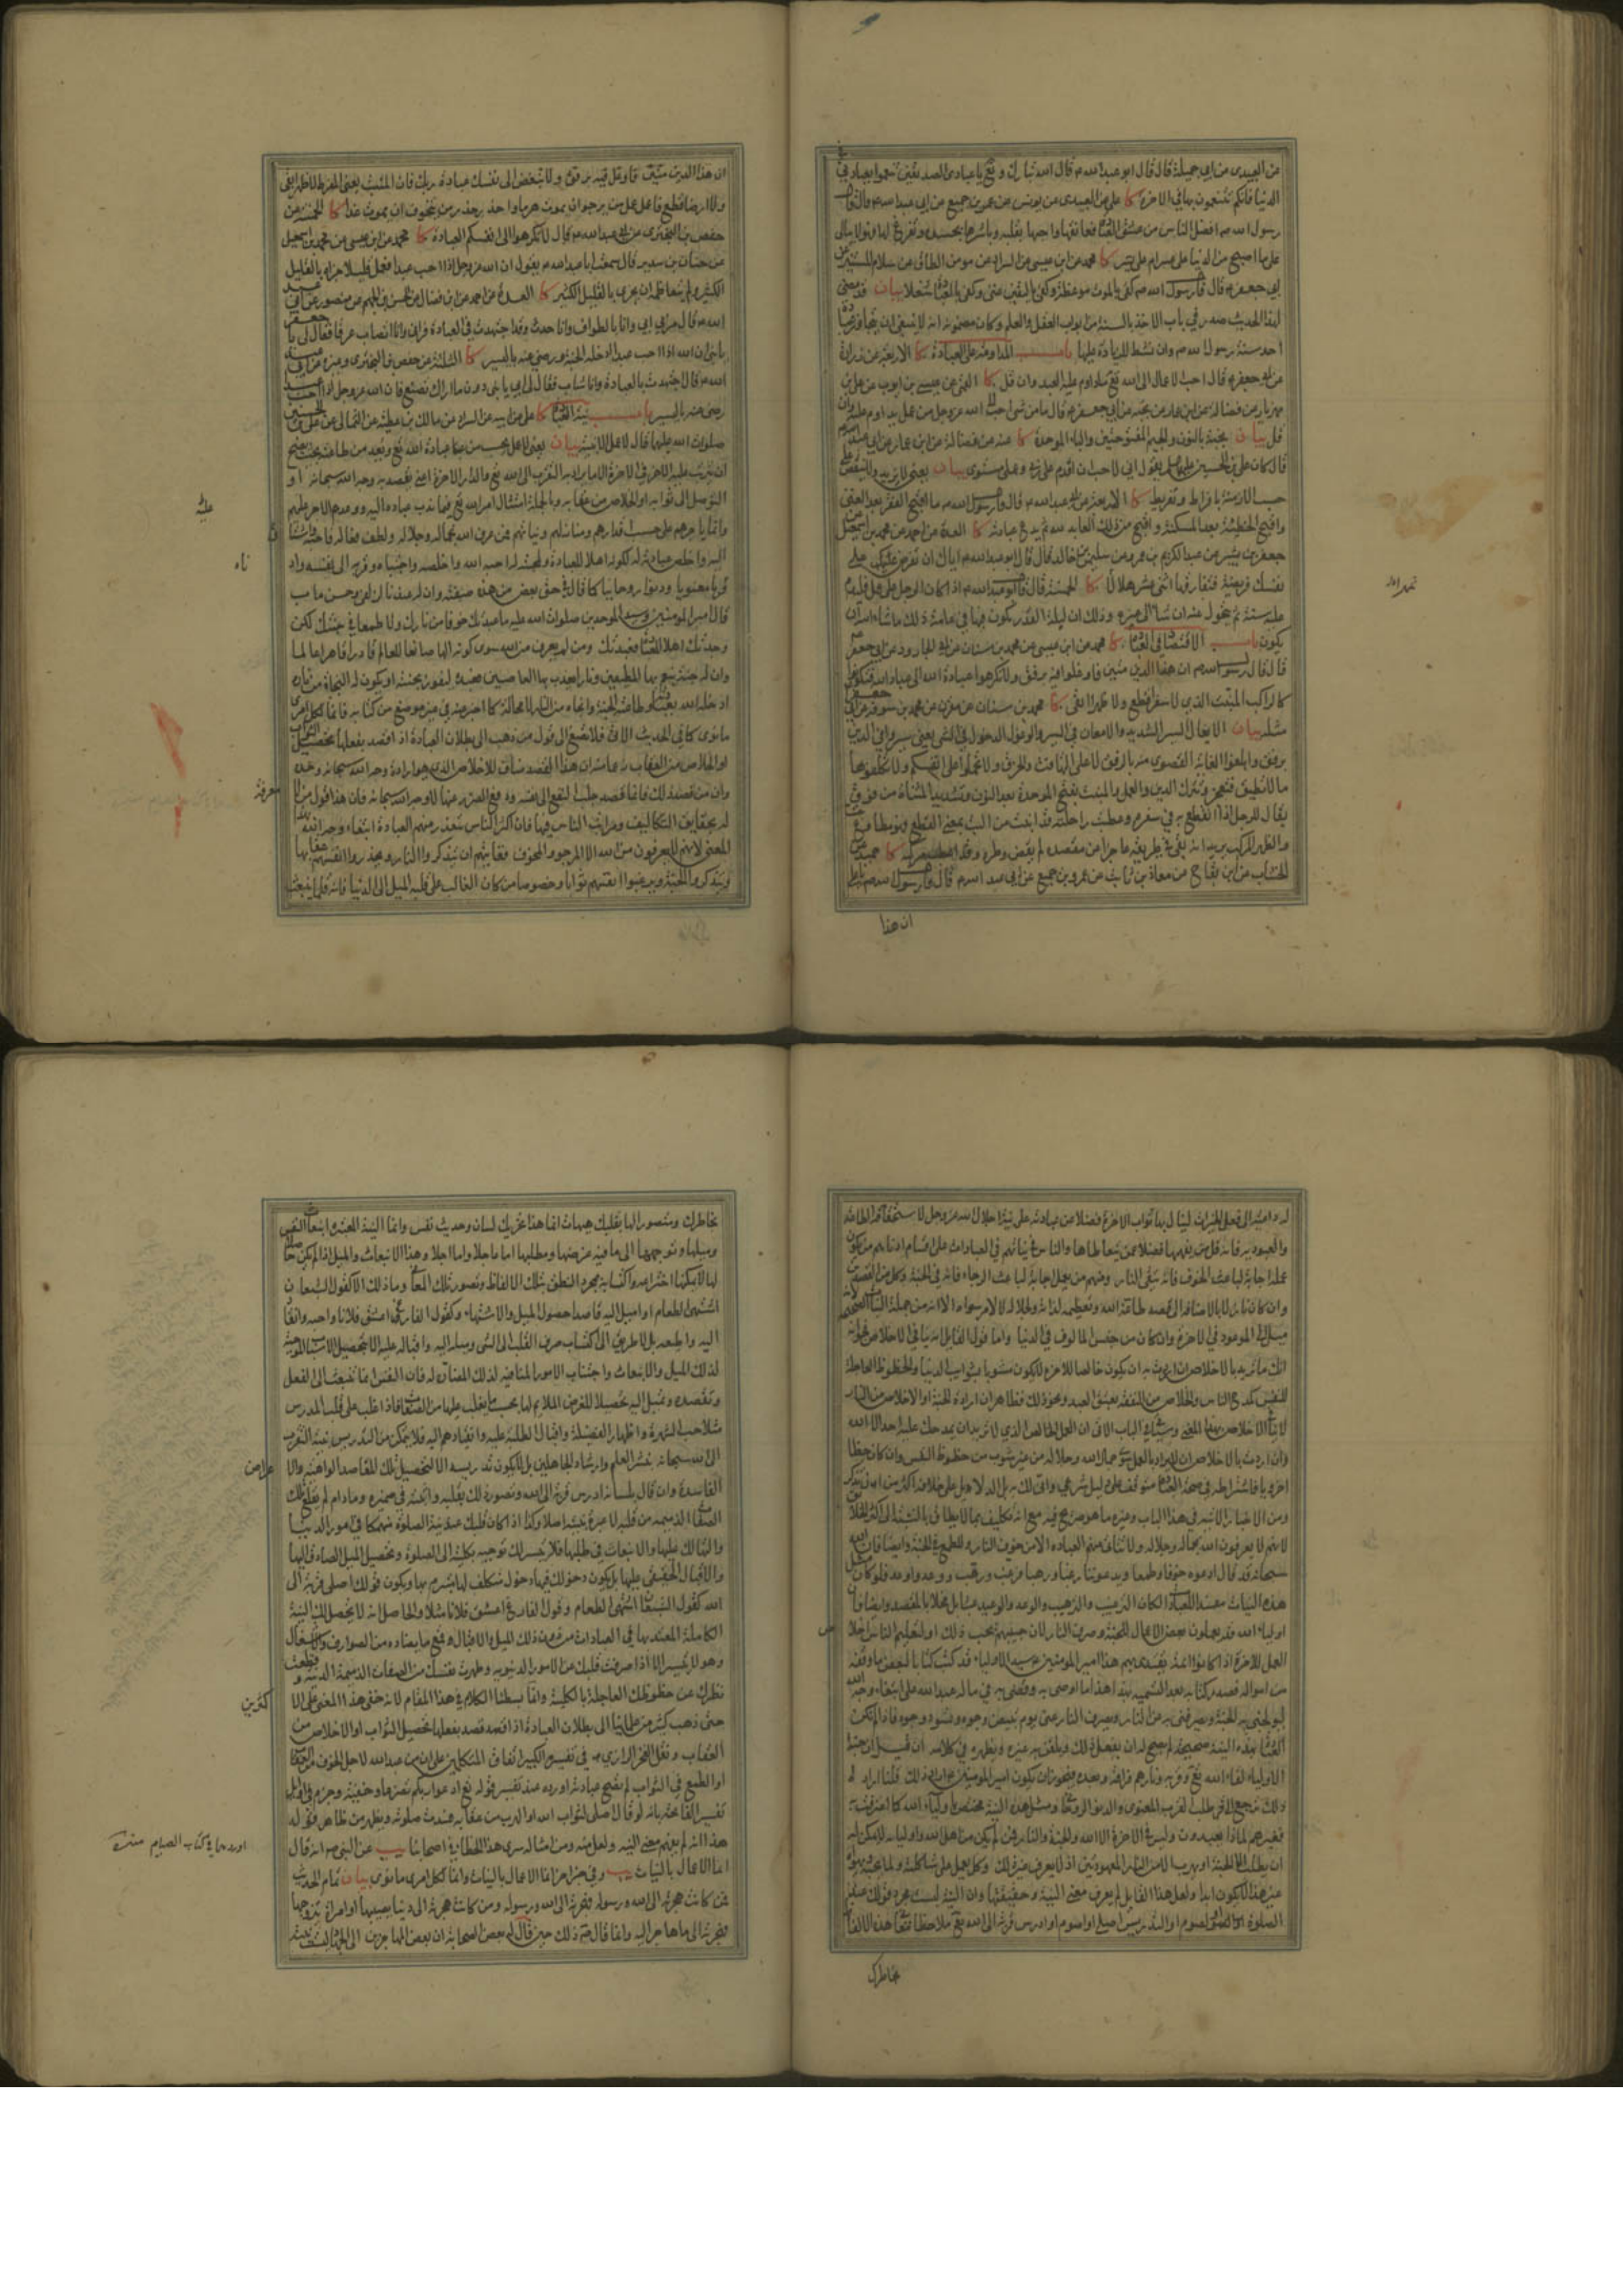 عن العبيدى عن ابى جميلة قال قال ابو عبد الله ع قال الله تبارك وتع يا عبادى الصديقين تنعموا بعبادتى فى
الدنيا فانكم تتنعمون بها فى الاخرة كا على عن العبيدى عن يونس عن عمرو بن جميع عن ابى عبد الله ع قال قال
رسول الله ص افضل الناس من عشق العبادة فعانقها واحبها بقلبه وباشرها بجسده وتفرغ لها فهو لا يبالى
على ما اصبح من الدنيا على عسر ام على يسر كا محمد عن ابن عيسى عن السراد عن مومن الطاق عن سلام بن المستنير عن
ابى جعفر ع قال قال رسول الله ص كفى بالموت موعظة وكفى باليقين غنى وكفى بالعبادة شغلا بيان قد مضى
لهذا الحديث صدر فى باب الاخذ بالسنة من ابواب العقل والعلم وكان مضمونه انه لا ينبغى ان يتجاوز
احد سنة رسول الله ص وان نشط للزيادة عليها باب المداومة على العبادة كا الاربعة عن زرارة
عن ابى جعفر ع قال احب الاعمال الى الله تع ما داوم عليه العبد وان قل كا القمى عن عيسى بن ايوب عن على بن
مهزيار عن فضالة عن ابن عمار عن نجبة عن ابى جعفر ع قال ما من شىء احب الى الله عز وجل من عمل يداوم عليه وان
قل بيان نجبة بالنون والجيم المفتوحتين والباء الموحدة كا عنه عن فضالة عن ابن عمار عن ابى عبد الله ع
قال كان على بن الحسين عليهما السلم يقول انى لاحب ان اقدم على ربى وعملى مستوى بيان يعنى لا يزيد ولا ينقص على
حسب الازمنة بافراط وتفريط كا الاربعة عن ابى عبد الله ع قال قال رسول الله ص ما اقبح الفقر بعد الغنى
واقبح الخطيئة بعد المسكنة واقبح من ذلك العابد لله ثم يدع عبادته كا العدة عن احمد عن محمد بن اسمعيل عن
جعفر بن بشير عن عبد الكريم بن عمرو عن سليمن بن خالد قال قال ابو عبد الله ع اياك ان تفرض على
نفسك فريضة فتفارقها اثنى عشر هلالا كا الخمسة قال قال ابو عبد الله ع اذا كان الرجل على عمل فليدم
عليه سنة ثم يتحول عنه ان شاء الى غيره وذلك ان ليلة القدر يكون فيها فى عامه ذلك ما شاء الله ان
يكون باب الاقتصاد فى العبادة كا محمد عن ابن عيسى عن محمد بن سنان عن ابى الجارود عن ابى جعفر ع
قال قال رسول الله ص ان هذا الدين متين فاوغلوا فيه برفق ولا تكرهوا عبادة الله الى عباد الله فتكونوا
كالراكب المنبت الذى لا سفرا قطع ولا ظهرا ابقى كا محمد بن سنان عن مقرن عن محمد بن سوقة عن ابى جعفر
مثله بيان الايغال السير الشديد والامعان فى السير والوغول الدخول فى الشىء يعنى سيروا فى الدين
برفق وابلغوا الغاية القصوى منه بالرفق لا على التهافت والخرق ولا تحملوا على انفسكم ولا تكلفوها
ما لا تطيق فتعجز وتترك الدين والعمل والمنبت بفتح الموحدة بعد النون وتشديد المثناة من فوق
يقال للرجل اذا انقطع به فى سفره وعطبت راحلته قد انبت من البت بمعنى القطع وهو مطاوع بت
والظهر المركب يريد انه بقى فى طريقه عاجزا عن مقصده لم يقض وطره وقد اعطب ظهره كا حميد عن
الخشاب عن ابن بقاح عن معاذ بن ثابت عن عمرو بن جميع عن ابى عبد الله ع قال قال رسول الله ص يا على
ان هذا
ان هذا الدين متين فاوغل فيه برفق ولا تبغض الى نفسك عبادة ربك فان المنبت يعنى المفرط لا ظهرا ابقى
ولا ارضا قطع فاعمل عمل من يرجو ان يموت هرما واحذر حذر من يتخوف ان يموت غدا كا الخمسة عن
حفص بن البخترى عن ابى عبد الله ع قال لا تكرهوا الى انفسكم العبادة كا محمد عن ابن عيسى عن محمد بن اسمعيل
عن حنان بن سدير قال سمعت ابا عبد الله ع يقول ان الله عز وجل اذا احب عبدا فعمل قليلا جزاه بالقليل
الكثير ولم يتعاظمه ان يجزى بالقليل الكثير كا العدة عن احمد عن ابن فضال عن الحسن بن الجهم عن منصور عن ابى عبد
الله ع قال مر بى ابى وانا بالطواف وانا حدث وقد اجتهدت فى العبادة فرانى وانا اتصاب عرقا فقال لى يا جعفر
يا بنى ان الله اذا احب عبدا ادخله الجنة ورضى عنه باليسير كا الثلثة عن حفص بن البخترى وغيره عن ابى عبد
الله ع قال اجتهدت بالعبادة وانا شاب فقال لى ابى يا بنى دون ما اراك تصنع فان الله عز وجل اذا احب عبدا
رضى عنه باليسير باب نية العبادة كا على عن ابيه عن السراد عن مالك بن عطية عن الثمالى عن على بن الحسين
صلوات الله عليهما قال لا عمل الا بنية بيان يعنى لا عمل يحسب من عبادة الله تع ويعد من طاعته بحيث يصح
ان يترتب عليه الاجر فى الاخرة الا ما يراد به التقرب الى الله تع والدار الاخرة اعنى يقصد به وجه الله سبحانه او
التوصل الى ثوابه او الخلاص من عقابه وبالجملة امتثال امر الله تع فيما ندب عباده اليه ووعدهم الاجر عليه
وانما ياجرهم على حسب اقدارهم ومنازلهم ونياتهم فمن عرف الله بجماله وجلاله ولطف فعاله فاحبه واشتاق
اليه واخلص عبادته له لكونه اهلا للعبادة ولمحبته له احبه الله واخلصه واجتباه وقربه الى نفسه وادناه
قربا معنويا ودنوا روحانيا كما قال فى حق بعض من هذه صفته وان له عندنا لزلفى وحسن ماب
قال امير المومنين وسيد الموحدين صلوات الله عليه ما عبدتك خوفا من نارك ولا طمعا فى جنتك لكن
وجدتك اهلا للعبادة فعبدتك ومن لم يعرف من الله سوى كونه الها صانعا للعالم قادرا قاهرا عالما
وان له جنة ينعم بها المطيعين ونارا يعذب بها العاصين فعبده ليفوز بجنته او يكون له النجاة من ناره
ادخله الله بعبادته وطاعته الجنة وانجاه من النار لا محالة كما اخبر عنه فى غير موضع من كتابه فانما لكل امرئ
ما نوى كما فى الحديث الاتى فلا تصغ الى قول من ذهب الى بطلان العبادة اذا قصد بفعلها تحصيل الثواب
او الخلاص من العقاب زعما منه ان هذا القصد مناف للاخلاص الذى هو ارادة وجه الله سبحانه وحده
وان من قصد ذلك فانما قصد جلب النفع الى نفسه ودفع الضرر عنها لا وجه الله سبحانه فان هذا قول من لا معرفة
له بحقايق التكاليف ومراتب الناس فيها فان اكثر الناس يتعذر منهم العبادة ابتغاء وجه الله بهذا
المعنى لانهم لا يعرفون من الله الا المرجو والمخوف فغايتهم ان يتذكروا النار ويحذروا انفسهم عقابها
ويتذكروا الجنة ويرغبوا انفسهم ثوابها وخصوصا من كان الغالب على قلبه الميل الى الدنيا فانه قلما ينبعث
له داعية الى فعل الخيرات لينال بها ثواب الاخرة فضلا عن عبادته على نية اجلال الله عز وجل لاستحقاقه الطاعة
والعبودية فانه قل من يفهمها فضلا عمن يتعاطاها والناس فى نياتهم فى العبادات على اقسام ادناهم من يكون
عمله اجابة لباعث الخوف فانه يتقى النار ومنهم من يعمل اجابة لباعث الرجاء فانه فى الجنة وكل من القصدين
وان كان نازلا بالاضافة الى قصد طاعة الله وتعظيمه لذاته ولجلاله لا لامر سواه الا انه من جملة النيات الصحيحة لانه
ميل الى الموعود فى الاخرة وان كان من جنس المالوف فى الدنيا واما قول القايل انه ينافى الاخلاص فجوابه
انك ما تريد بالاخلاص ان اردت به ان يكون خالصا للاخرة لا يكون مشوبا بشوايب الدنيا والحظوظ العاجلة
للنفس كمدح الناس والخلاص من النفقة بعتق العبد ونحو ذلك فظاهر ان ارادة الجنة او الخلاص من النار
لا ينافى الاخلاص بهذا المعنى وسيأتى فى الباب الاتى ان العمل الخالص الذى لا تريد ان يمدحك عليه احد الا الله
وان اردت بالاخلاص ان لا يراد بالعمل سوى جمال الله وجلاله من غير شوب من حظوظ النفس وان كان حظا
اخرويا فاشتراطه فى صحة العبادة متوقف على دليل شرعى وانى لك به بل الدلايل على خلافه اكثر من ان تذكر
ومن الاخبار الاتية فى هذا الباب وغيره ما هو صريح فيه مع انه تكليف بما لا يطاق بالنسبة الى اكثر الخلايق
لانهم لا يعرفون الله بجماله وجلاله ولا تتأتى منهم العبادة الا من خوف النار والطمع فى الجنة وايضا فان الله
سبحانه قد قال ادعوه خوفا وطمعا ويدعوننا رغبا ورهبا فرغب ورهب ووعد واوعد فلو كان مثل
هذه النيات مفسدا للعبادة لكان الترغيب والترهيب والوعد والوعيد عبثا بل مخلا بالمقصود وايضا فان
اولياء الله قد يعملون بعض الاعمال للجنة وصرف النار لان حبيبهم يحب ذلك او لتعليم الناس اخلاص
العمل للاخرة اذا كانوا ائمة يقتدى بهم هذا امير المومنين ع سيد الاولياء قد كتب كتابا لبعض ما وقفه
من امواله فصدر كتابه بعد التسمية بهذا هذا ما اوصى به وقضى به فى ماله عبد الله على ابتغاء وجه الله
ليولجنى به الجنة ويصرفنى به عن النار ويصرف النار عنى يوم تبيض وجوه وتسود وجوه فاذا لم تكن
العبادة بهذه النية صحيحة لم يصح له ان يفعل ذلك ويلقن به غيره ويظهره فى كلامه ان قيل ان جنة
الاولياء لقاء الله تع وقربه ونارهم فراقه وبعده فيجوز ان يكون امير المومنين ع اراد ذلك قلنا ارادة
ذلك ترجع الى طلب القرب المعنوى والدنو الروحانى ومثل هذه النية مختص باولياء الله كما اعترفت به
فغيرهم لماذا يعبدون وليس فى الاخرة الا الله والجنة والنار فمن لم يكن من اهل الله واوليائه لا يمكن له
ان يطلب الا الجنة او يهرب الا من النار المعهودتين اذ لا يعرف غير ذلك وكل يعمل على شاكلته ولما يحبه ويهواه
غير هذا لا يكون ابدا ولعل هذا القايل لم يعرف معنى النية وحقيقتها وان النية ليست مجرد قولك عند
الصلوة او الصوم او التدريس اصلى او اصوم او ادرس قربة الى الله تع ملاحظا معانى هذه الالفاظ
بخاطرك
بخاطرك ومتصورا لها بقلبك هيهات انما هذا تحريك لسان وحديث نفس وانما النية المعتبرة انبعاث النفس
وميلها وتوجهها الى ما فيه غرضها ومطلبها اما عاجلا واما اجلا وهذا الانبعاث والميل اذا لم يكن حاصلا
لها لا يمكنها اختراعه واكتسابه بمجرد النطق بتلك الالفاظ وتصور تلك المعانى وما ذلك الا كقول الشبعان
اشتهى الطعام او اميل اليه قاصدا حصول الميل والاشتهاء وكقول الفارغ اعشق فلانا واحبه وانقاد
اليه واطيعه بل لا طريق الى اكتساب صرف القلب الى الشىء وميله اليه واقباله عليه الا بتحصيل الاسباب الموجبة
لذلك الميل والانبعاث واجتناب الامور المنافية لذلك المضادة له فان النفس انما تنبعث الى الفعل
وتقصده وتميل اليه تحصيلا للغرض الملايم لها بحسب ما يغلب عليها من الصفات فاذا غلب على قلب المدرس
مثلا حب الشهرة واظهار الفضيلة واقبال الطلبة عليه وانقيادهم اليه فلا يتمكن من التدريس بنية التقرب
الى الله سبحانه بنشر العلم وارشاد الجاهلين بل لا يكون تدريسه الا لتحصيل تلك المقاصد الواهية والاغراض
الفاسدة وان قال بلسانه ادرس قربة الى الله وتصور ذلك بقلبه واثبته فى ضميره وما دام لم يقلع تلك
الصفات الذميمة من قلبه لا عبرة بنيته اصلا وكذا اذا كان قلبك عند نية الصلوة منهمكا فى امور الدنيا
والتهالك عليها والانبعاث فى طلبها فلا يتيسر لك توجيهه بكليته الى الصلوة وتحصيل الميل الصادق اليها
والاقبال الحقيقى عليها بل يكون دخولك فيها دخول متكلف لها متبرم بها ويكون قولك اصلى قربة الى
الله كقول الشبعان اشتهى الطعام وقول الفارغ اعشق فلانا مثلا والحاصل انه لا يحصل لك النية
الكاملة المعتد بها فى العبادات من دون ذلك الميل والاقبال وقمع ما يضاده من الصوارف والاشغال
وهو لا يتيسر الا اذا صرفت قلبك عن الامور الدنيوية وطهرت نفسك من الصفات الذميمة الدنية وقطعت
نظرك عن حظوظك العاجلة بالكلية وانما بسطنا الكلام فى هذا المقام لانه خفى هذا المعنى على الاكثرين
حتى ذهب كثير من علمائنا الى بطلان العبادة اذا قصد بفعلها تحصيل الثواب او الخلاص من
العقاب ونقل الفخر الرازى فى تفسيره الكبير اتفاق المتكلمين على ان من عبد الله لاجل الخوف من العقاب
او الطمع فى الثواب لم تصح عبادته اورده عند تفسير قوله تع ادعوا ربكم تضرعا وخفية وجزم فى اوايل
تفسير الفاتحة بانه لو قال اصلى لثواب الله او الهرب من عقابه فسدت صلوته ويظهر من ظاهر قوله
هذا انه لم يفهم معنى النية ولعل منه ومن امثاله سرى هذا الخطأ فى اصحابنا يب عن النبى ص انه قال
انما الاعمال بالنيات يب وفى خبر اخر انما الاعمال بالنيات وانما لكل امرئ ما نوى بيان تمام الحديث
فمن كانت هجرته الى الله ورسوله فهجرته الى الله ورسوله ومن كانت هجرته الى دنيا يصيبها او امراة يتزوجها
فهجرته الى ما هاجر اليه وانما قال ص ذلك حين قال له بعض الصحابة ان بعض المهاجرين الى الجهاد ليست نيته
اوردهما فى كتاب الصيام منه